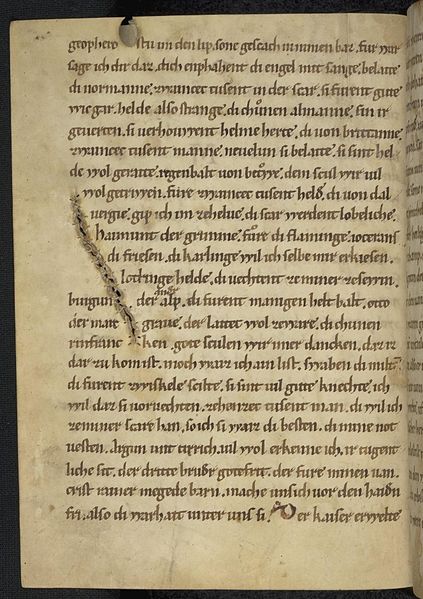 stu im den lip. sone gescach in nimen baz. fur war
sage ich dir daz. dich enphahent di engel mit sange. belatte
di normanne. zwainzec tusent in der scar. si furent gute
wicgar. helde also strange. di chunen almanne. sin ir
geuerten. si uerhowwent helme herte. di von brittannie.
tusent manne. neuelun si belatte. si sint hel
de wol geratte. regenbalt von dem scul wir uil
wol getruwen. fure tusent held. di von dal
uergie. gip ich im zehelue. di scar werdent lobeliche.
haimunt der grimme. fure di flaminge. iocerans
di friesen. di karlinge wil ich selbe mir erkiesen.
lothringe helde. di uechtent
burgun der alp. di furent manigen helt balt. otto
der mar graue. der laitet wol zeware. di chunen
rinfranc ken. gote sculen wir imer dancken. daz iz
dar zu komist. noch waiz ich ain list. swaben di milten
di furent scilte. si sint uil gute knechte. ich
wil daz si uoruechten. zehenzec tusent man. di wil ich
ze miner scare han. so ich si waiz di besten. di mine not
uesten. argun unt tirrich. uil wol erkenne ich. ir tugent
liche sit. der dritte bruder gotefrit. der fure minen uan.
crist rainer megede barn. mache unsich uor den haidin
fri. also di warhait unter uns si. Der kaiser erwelte